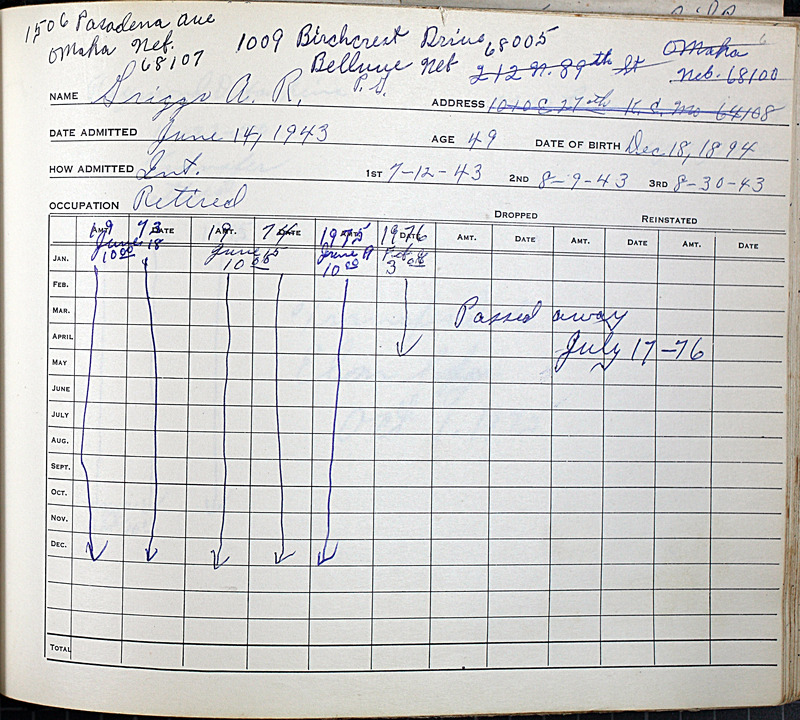 1506 Pasadena Ave
Omaha Neb.
68107
1009 Birchcrest Drive 68005
Bellevue Neb
212 N. 89th St Omaha
Neb. 68100
P.G.
NAME Griggs A. R. ADDRESS 1010 E 27th K. C. Mo 64108
DATE ADMITTED June 14, 1943 AGE 49 DATE OF BIRTH Dec 18, 1894
HOW ADMITTED Int. 1ST 7-12-43 2ND 8-9-43 3RD 8-30-43
OCCUPATION Retired
DROPPED REINSTATED
AMT. DATE AMT. DATE AMT. DATE AMT. DATE AMT. DATE AMT. DATE
19 73 19 74 1975 1976
June 18 June 15 June 19 Feb
JAN. 10 00 10 10 00 3
FEB.
MAR. Passed away
APRIL July 17-76
MAY
JUNE
JULY
AUG.
SEPT.
OCT.
NOV.
DEC.
TOTAL